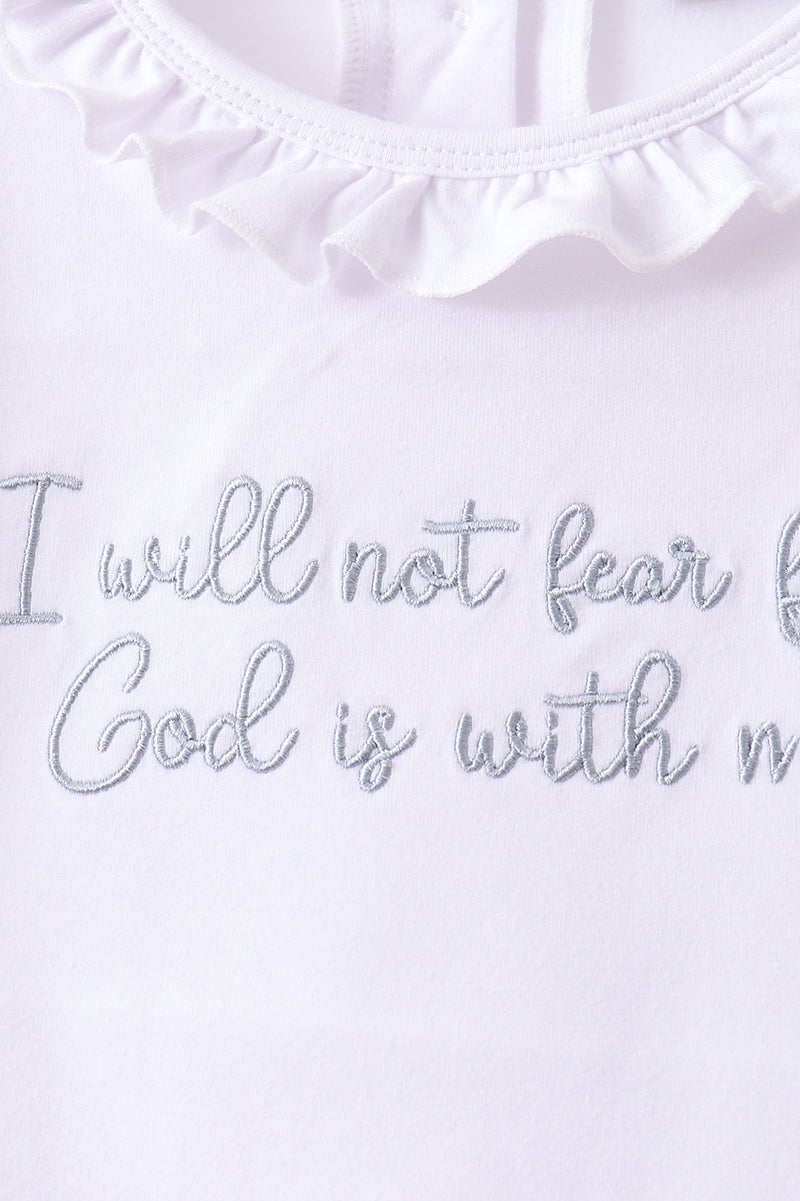 I will not fear f
God is with m